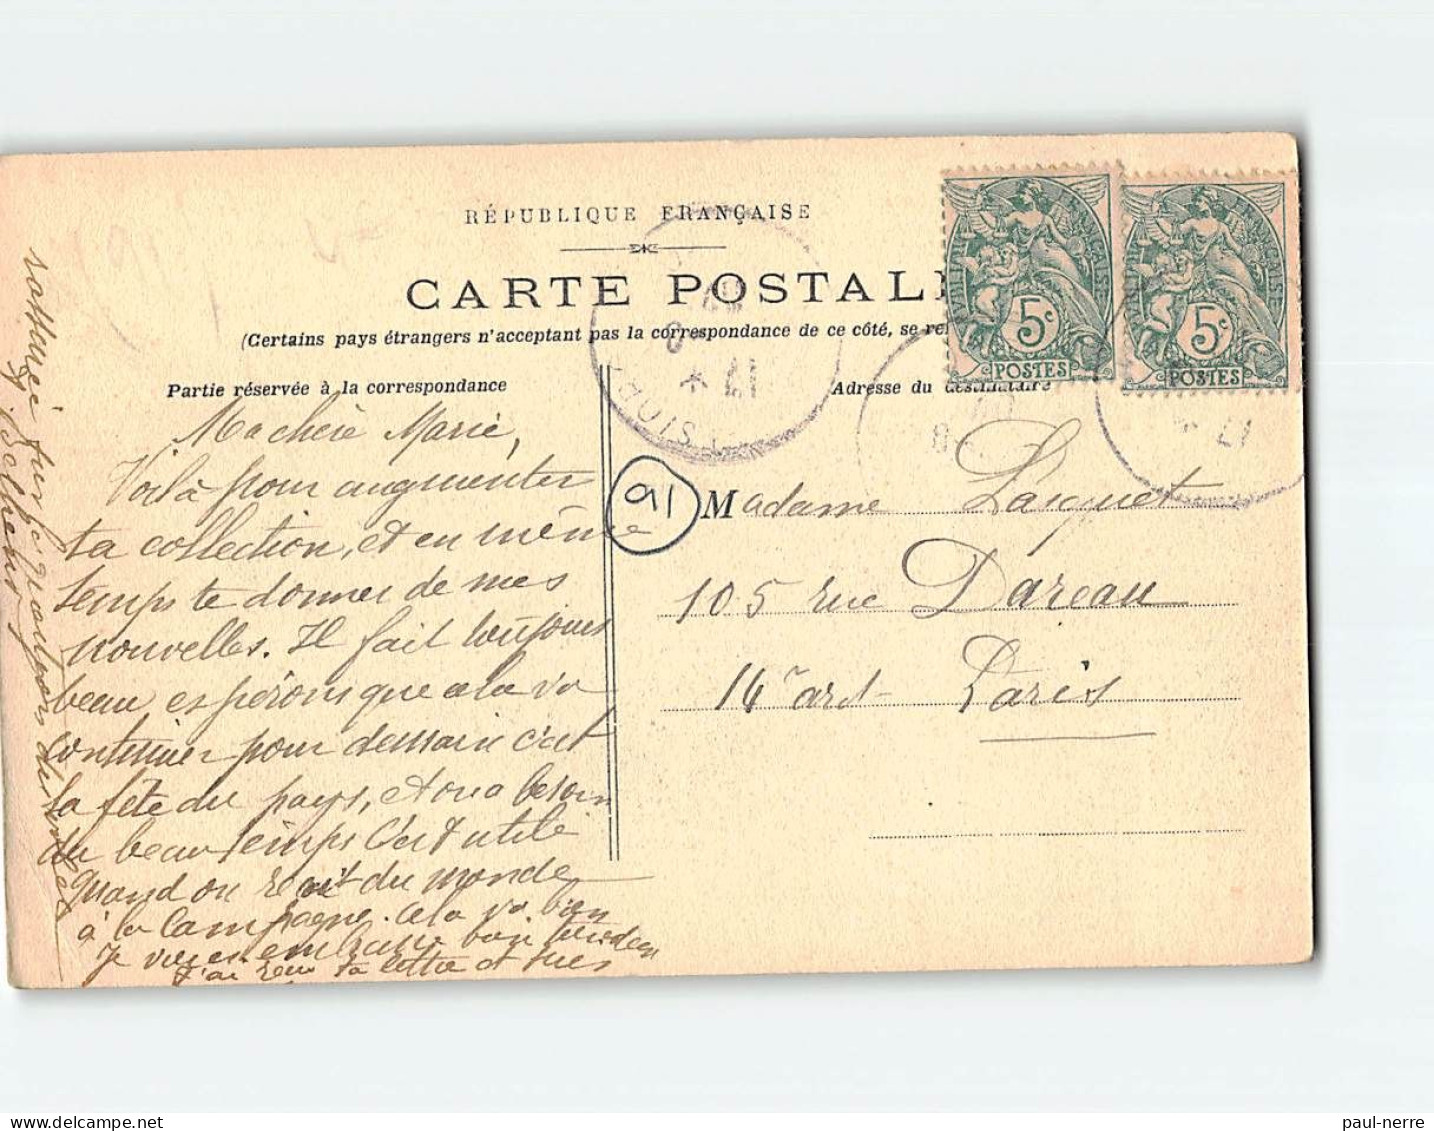 RÉPUBLIQUE FRANÇAISE
CARTE POSTAL
(Certains pays étrangers n'acceptent pas la correspondance de ce côté, se
Partie réservée à la correspondance
Adresse du destinataire
5c
POSTES
5c
POSTES
91
Ma chère Marie,
Voilà pour augmenter
ta collection, et en même
temps te donner de mes
nouvelles. Il fait toujours
beau espérons que cela va
continuer pour demain c'est
la fête du pays, et on a besoin
du beau temps C'est utile
quand on reçoit du monde
à la Campagne. Cela va bien
Je
J'ai reçu ta lettre et suis
Madame Lasquet
105 rue Dareau
14e art Paris
paul-nerre